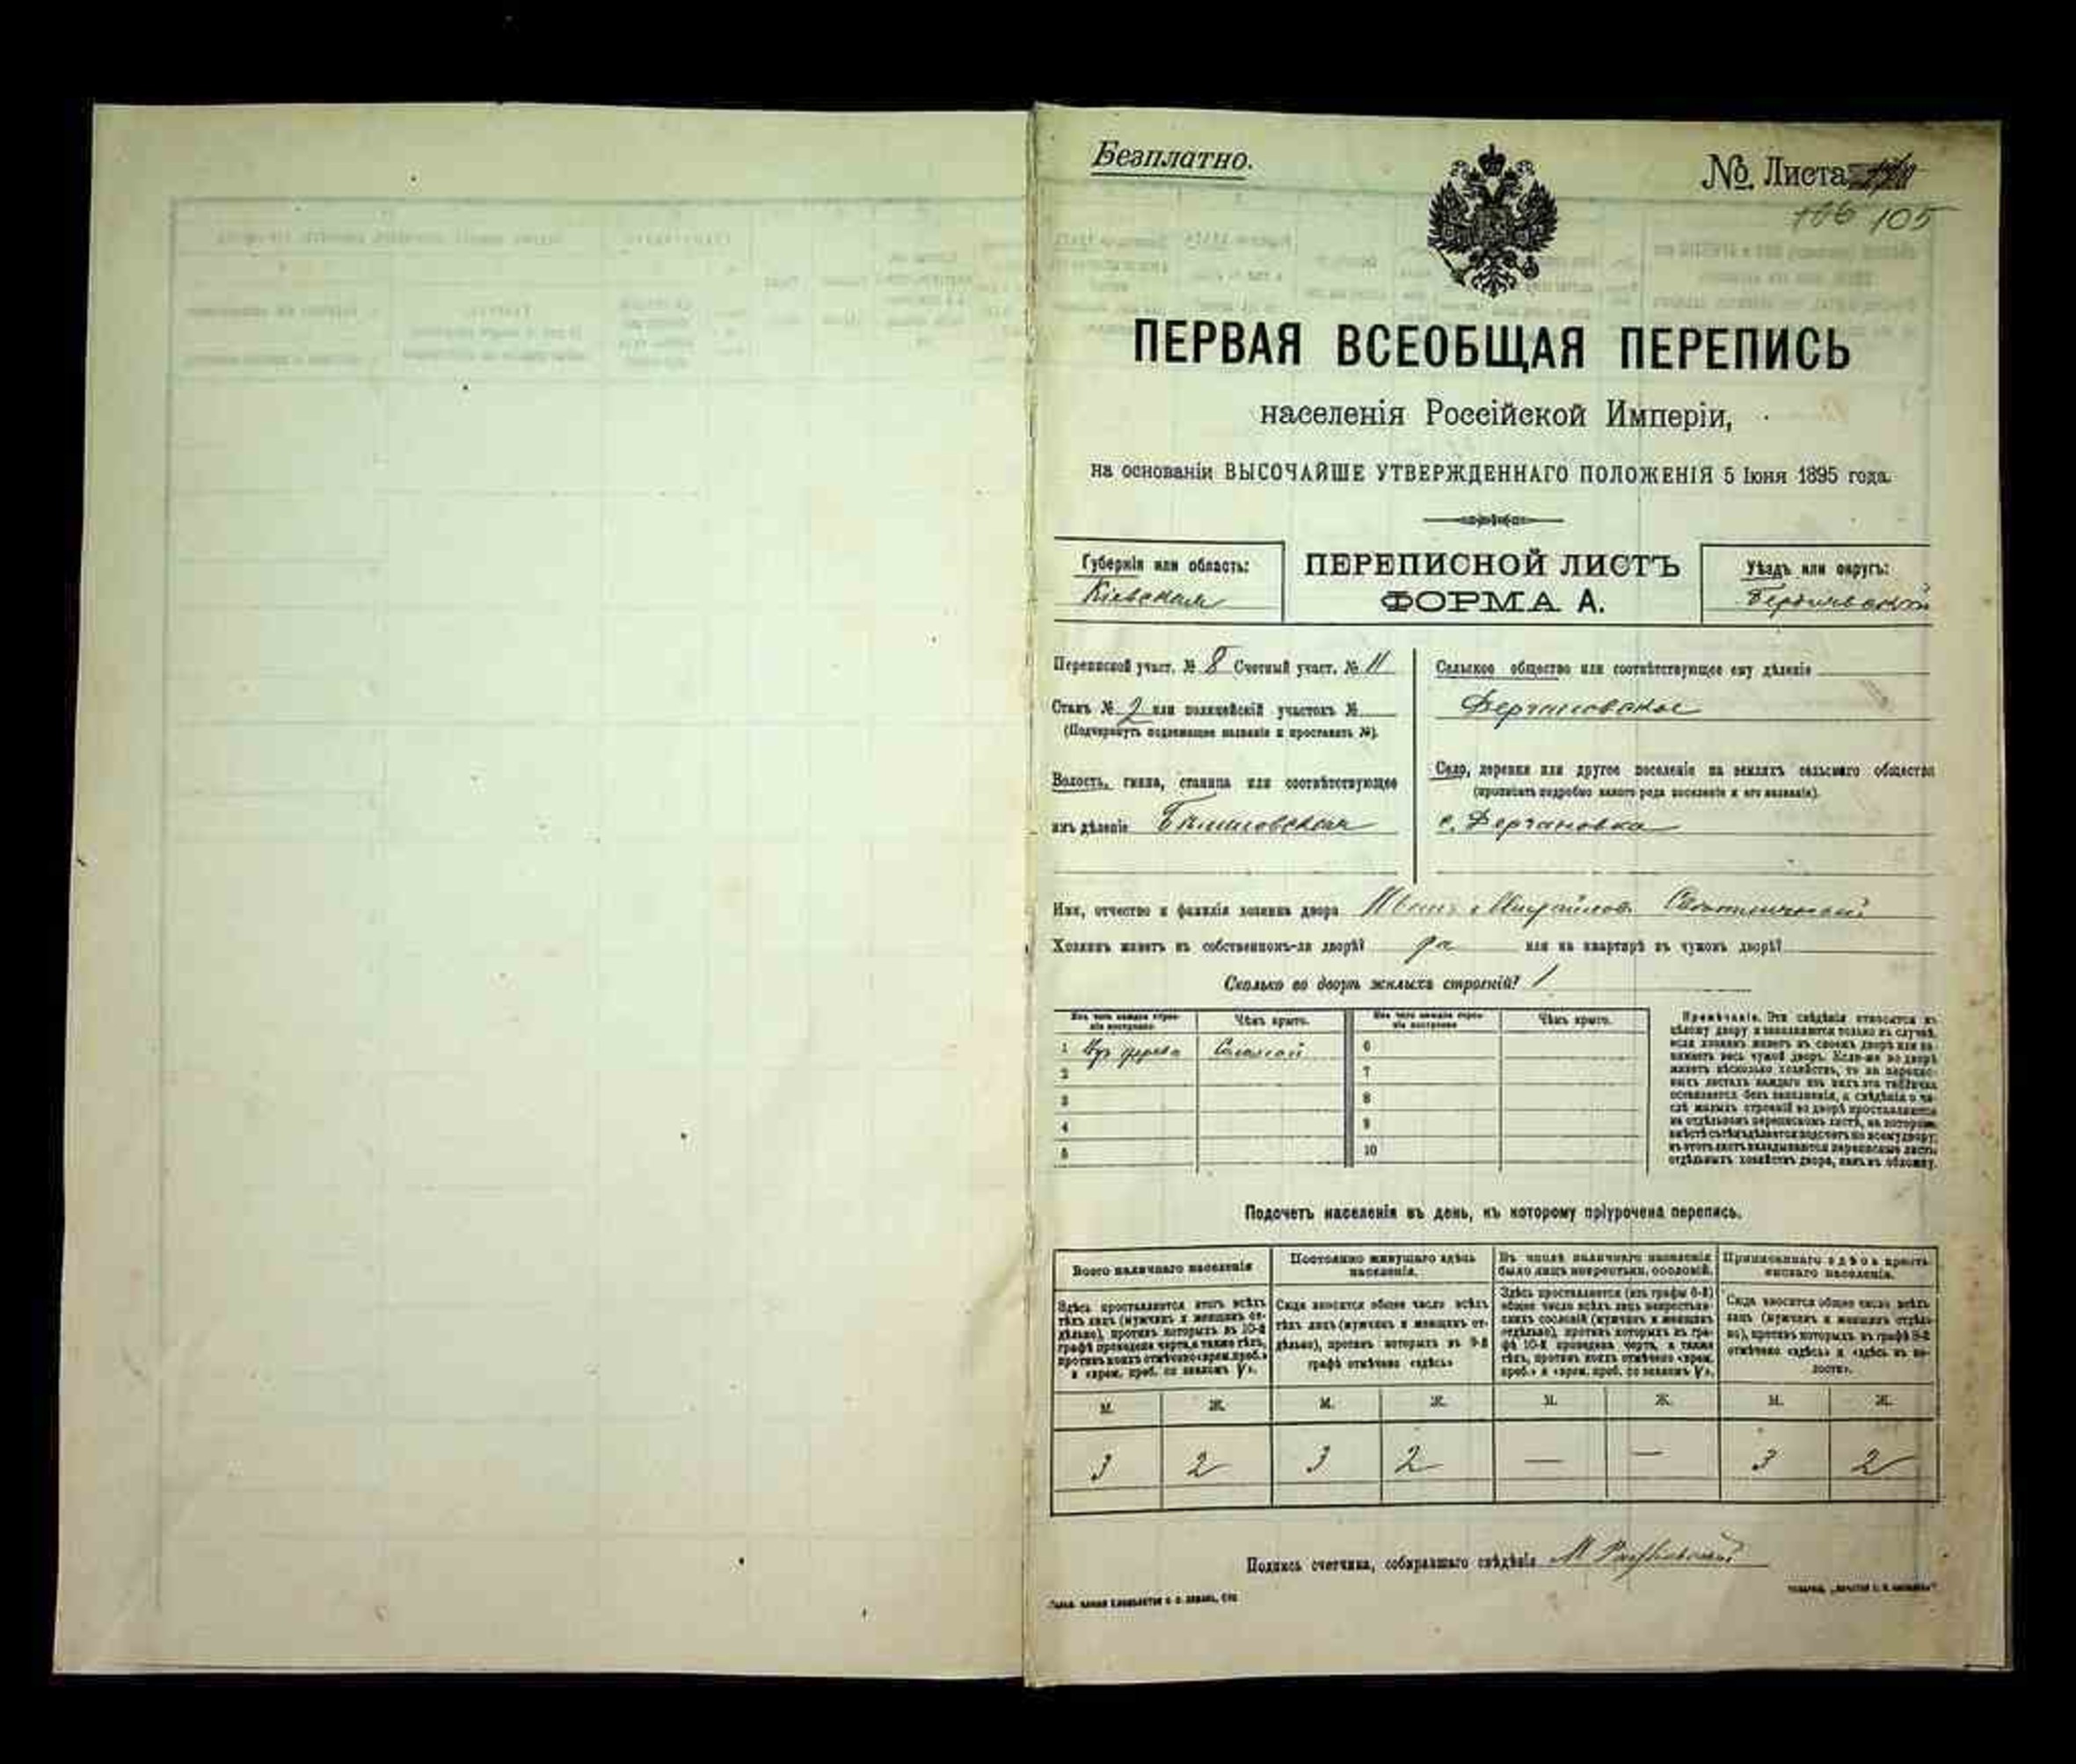 Безплатно.
№ Листа
106 105
ПЕРВАЯ ВСЕОБЩАЯ ПЕРЕПИСЬ
населенія Россійской Имперіи,
на основаніи ВЫСОЧАЙШЕ УТВЕРЖДЕННАГО ПОЛОЖЕНІЯ 5 Іюня 1895 года.
Губернія или область:
Кіевская
ПЕРЕПИСНОЙ ЛИСТЪ
ФОРМА А.
Уѣздъ или округъ:
Бердичевскій
Переписной участ. № 8 Счетный участ. № 11
Станъ № 2 или полицейскій участокъ №
(Подчеркнуть подлежащее названіе и проставить №).
Волость, гмина, станица или соотвѣтствующее
имъ дѣленіе
Сельское общество или соотвѣтствующее ему дѣленіе
Дергановское
Село, деревня или другое поселеніе на земляхъ сельскаго общества
(прописать подробно какого рода поселеніе и его названіе).
с. Дергановка
Имя, отчество и фамилія хозяина двора Иванъ Михайловъ
Хозяинъ живетъ въ собственномъ-ли дворѣ? да или на квартирѣ въ чужомъ дворѣ?
Сколько во дворѣ жилыхъ строеній? 1
Изъ чего каждое строеніе построено Чѣмъ крыто. Изъ чего каждое строеніе построено Чѣмъ крыто.
1 Изъ дерева Соломой 6
2 7
3 8
4 9
5 10
Примѣчаніе. Эти свѣдѣнія относятся къ
цѣлому двору и заполняются только въ случаѣ,
если хозяинъ живетъ въ своемъ дворѣ или за-
нимаетъ весь чужой дворъ. Если-же во дворѣ
живетъ нѣсколько хозяйствъ, то на перепис-
ныхъ листахъ каждаго изъ нихъ эта табличка
оставляется безъ заполненія, а свѣдѣнія о чи-
слѣ жилыхъ строеній во дворѣ проставляются
на отдѣльномъ переписномъ листѣ, на которомъ
вмѣстѣ съ тѣмъ дѣлается подсчетъ по всему двору;
въ этотъ листъ вкладываются переписные листы
отдѣльныхъ хозяйствъ двора, какъ въ обложку.
Подсчетъ населенія въ день, къ которому пріурочена перепись.
Всего наличнаго населенія
Здѣсь проставляется итогъ всѣхъ
тѣхъ лицъ (мужчинъ и женщинъ от-
дѣльно), противъ которыхъ въ 10-й
графѣ проведена черта, а также тѣхъ,
противъ коихъ отмѣчено «врем. преб.»
и «врем. преб. со знакомъ V».
Постоянно живущаго здѣсь
населенія.
Сюда вносится общее число всѣхъ
тѣхъ лицъ (мужчинъ и женщинъ от-
дѣльно), противъ которыхъ въ 9-й
графѣ отмѣчено «здѣсь»
Въ числѣ наличнаго населенія
было лицъ некрестьян. сословій.
Здѣсь проставляется (изъ графы 6-й)
общее число всѣхъ лицъ некрестьян-
скихъ сословій (мужчинъ и женщинъ
отдѣльно), противъ которыхъ въ гра-
фѣ 10-й проведена черта, а также
тѣхъ, противъ коихъ отмѣчено «врем.
преб.» и «врем. преб. со знакомъ V».
Приписаннаго здѣсь кресть-
янскаго населенія.
Сюда вносится общее число всѣхъ
лицъ (мужчинъ и женщинъ отдѣль-
но), противъ которыхъ въ графѣ 8-й
отмѣчено «здѣсь» и «здѣсь въ во-
лости».
М. Ж. М. Ж. М. Ж. М. Ж.
3 2 3 2 — — 3 2
Подпись счетчика, собиравшаго свѣдѣнія М